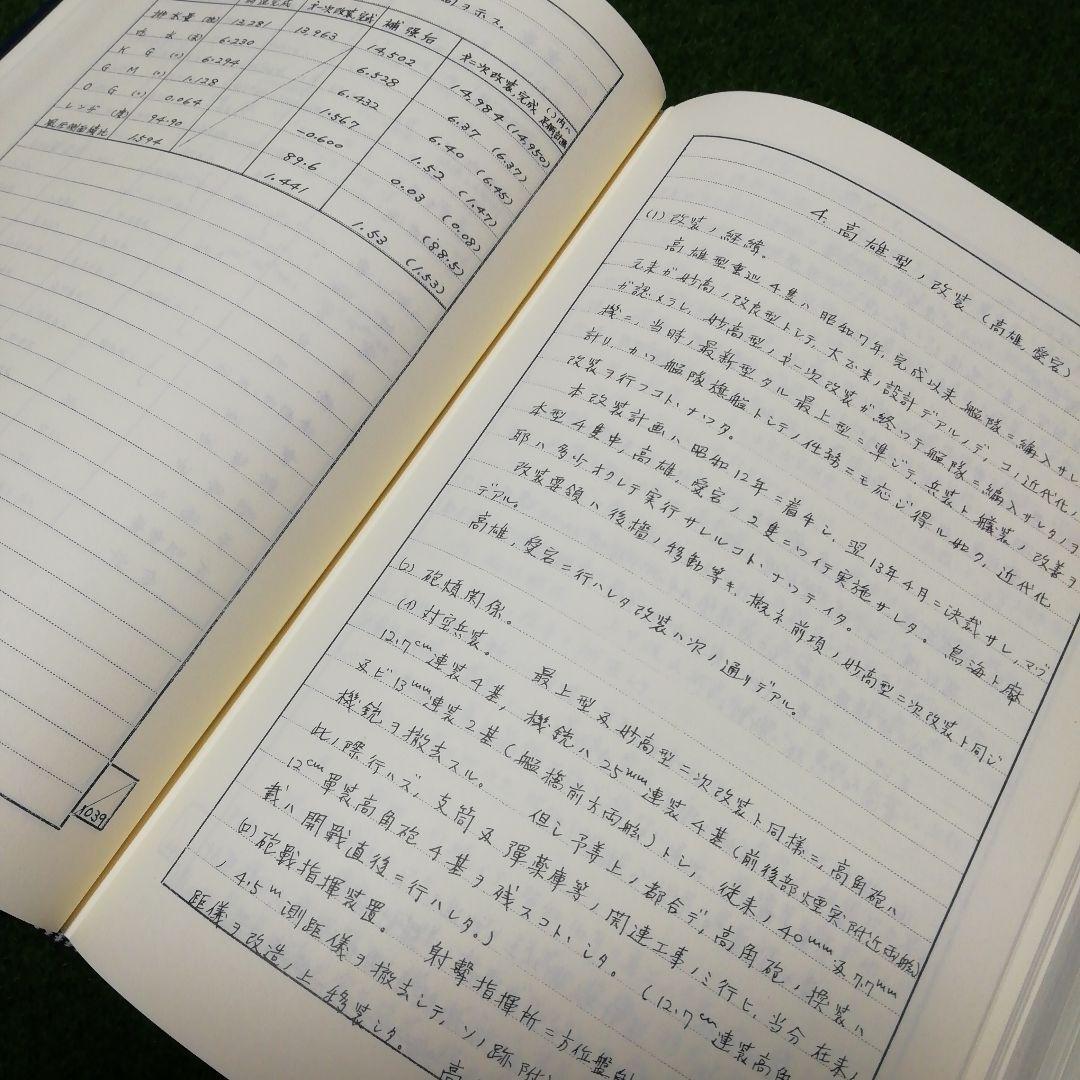 ヲ示ス。
第一次改装完成 補強后 第二次改装完成 ( )内ハ
排水量 (瓲) 13,281 13,963 14,502 14,984 (14,950)
吃水 (米) 6.230 6.528 6.37 (6.37)
K G (〃) 6.294 6.432 6.40 (6.45)
G M (〃) 1.128 1.567 1.52 (1.47)
O G (〃) 0.064 -0.600 0.03 (0.08)
レンヂ (度) 94.90 89.6 (88.5)
風圧側面積比 1.594 1.441 1.53 (1.53)
1039
4. 高雄型ノ改装 (高雄、愛宕)
(1) 改装ノ経緯。
高雄型重巡4隻ハ昭和7年、完成以来、艦隊ニ編入サレ
元来ガ妙高ノ改良型トシテ、大正末ノ設計デアルノデ、コノ近代化ノ
ガ認メラレ、妙高型ノ第一次改装ガ終ッテ艦隊ニ編入サレタノヲ
機ニ、当時ノ最新型タル最上型ニ準ジテ、兵装ト艤装ノ改善ヲ
計リ、カツ艦隊旗艦トシテノ任務ニモ応ジ得ル如ク、近代化
改装ヲ行フコトトナッタ。
本改装計画ハ昭和12年ニ着手シ、翌13年4月ニ決裁サレ、マヅ
本型4隻中、高雄、愛宕ノ2隻ニツイテ実施サレタ。 鳥海ト摩
耶ハ多少オクレテ実行サレルコトトナッテイタ。
改装要領ハ後檣ノ移動等モ、概ネ前項ノ妙高型二次改装ト同ジ
デアル。
高雄、愛宕ニ行ハレタ改装ハ次ノ通リデアル。
(2) 砲熕関係。
(イ) 対空兵装。 最上型及妙高型二次改装ト同様ニ、高角砲ハ
12.7cm連装4基、機銃ハ25mm連装4基(前後部煙突附近両舷)
及ビ13mm連装2基(艦橋前方両舷)トシ、従来ノ40mm及7.7mm
機銃ヲ撤去スル。 但シ予算上ノ都合デ、高角砲ノ換装ハ
此ノ際行ハズ、支筒及弾薬庫等ノ関連工事ノミ行ヒ、当分在来ノ
12cm単装高角砲4基ヲ残スコトトシタ。 (12.7cm連装高角
載ハ開戦直後ニ行ハレタ。)
(ロ) 砲戦指揮装置。 射撃指揮所ニ方位盤
、4.5m測距儀ヲ撤去シテ、ソノ跡
距儀ヲ改造ノ上、移装シタ。 高